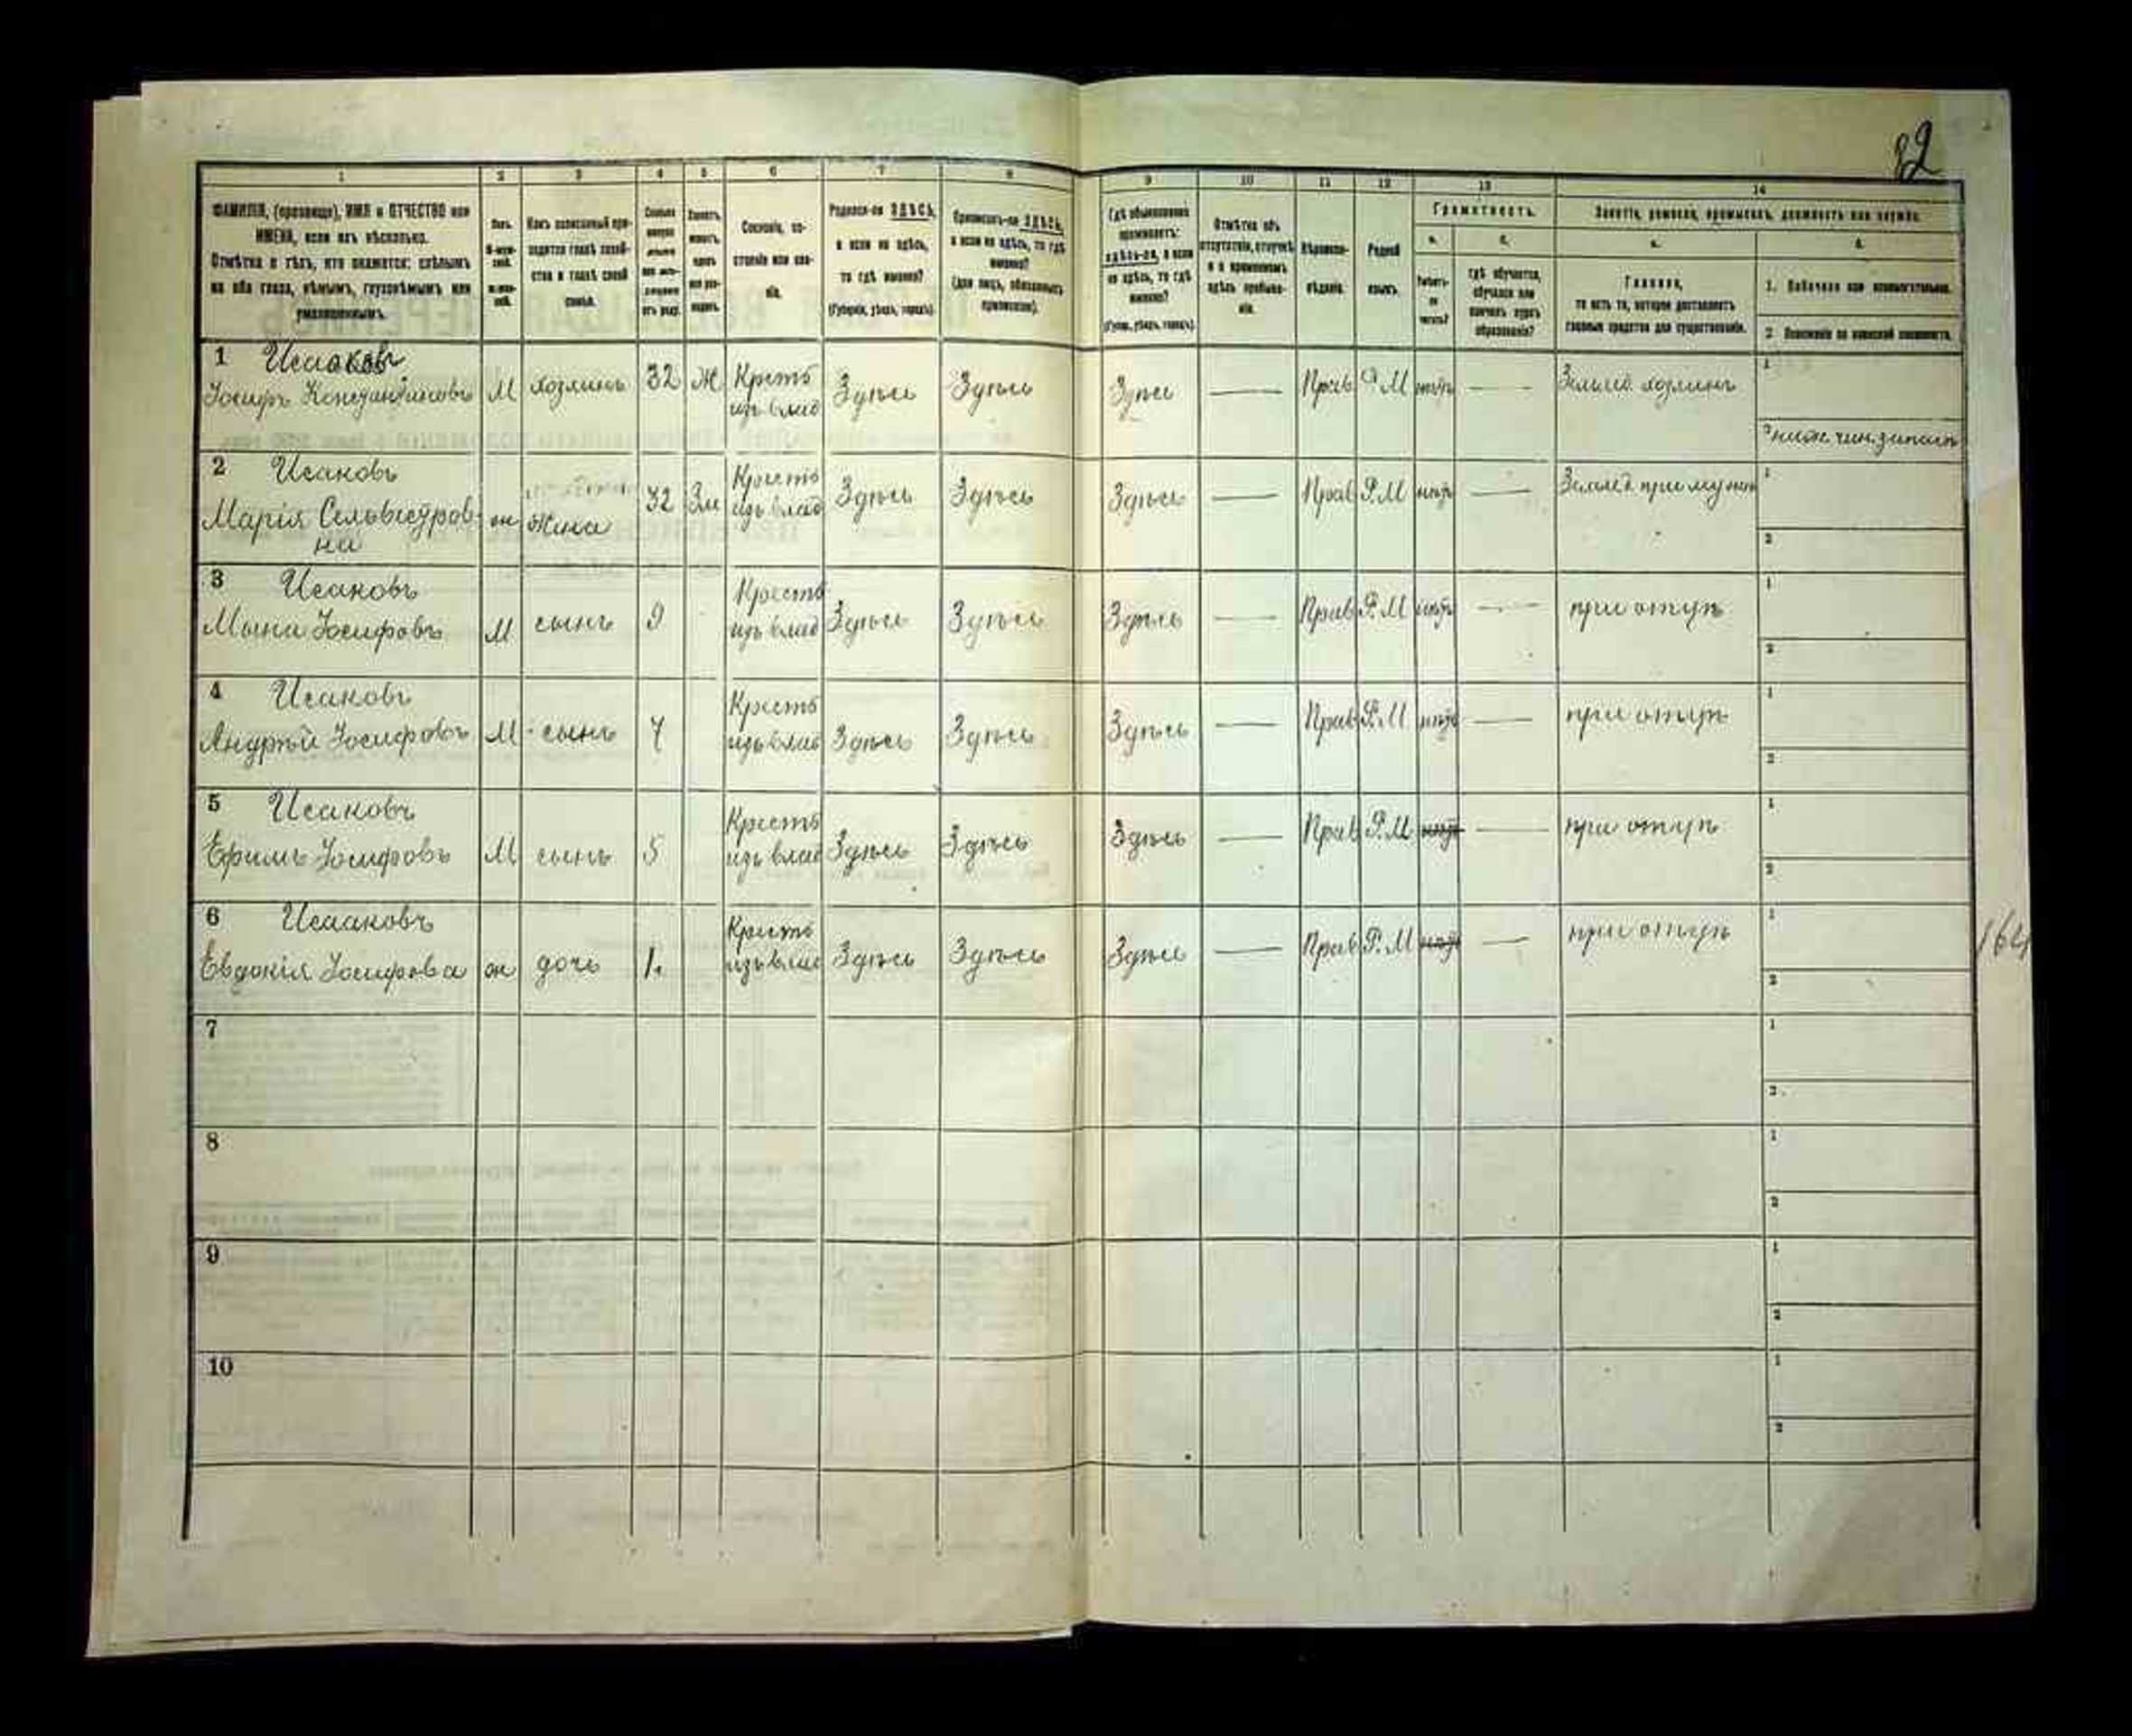 82
1 2 3 4 5 6 7 8 9 10 11 12 13 14
ФАМИЛІЯ, (прозвище), ИМЯ и ОТЧЕСТВО или
ИМЕНА, если ихъ нѣсколько.
Отмѣтка о тѣхъ, кто окажется: слѣпымъ
на оба глаза, нѣмымъ, глухонѣмымъ или
умалишеннымъ.
Полъ.
Какъ записанный при-
ходится главѣ хозяй-
ства и главѣ своей
семьи.
Сословіе, со-
стояніе или зва-
ніе.
Родился-ли ЗДѢСЬ,
а если не здѣсь,
то гдѣ именно?
(Губернія, уѣздъ, городъ).
Приписанъ-ли ЗДѢСЬ,
а если не здѣсь, то гдѣ
именно?
(для лицъ, обязанныхъ
припискою).
Гдѣ обыкновенно
проживаетъ:
здѣсь-ли, а если
не здѣсь, то гдѣ
именно?
(Губер., уѣздъ, городъ).
Отмѣтка объ
отсутствіи, отлучкѣ
и о временномъ
здѣсь пребыва-
ніи.
Вѣроиспо-
вѣданіе.
Родной
языкъ.
Грамотность.
а. б.
Умѣетъ-
ли
читать?
гдѣ обучается,
обучался или
кончилъ курсъ
образованія?
Занятіе, ремесло, промыселъ, должность или служба.
а. б.
Главное,
то есть то, которое доставляетъ
главныя средства для существованія.
1. Побочное или вспомогательное.
2 Положеніе по воинской повинности.
1 Исааковъ
Іосифъ Константиновъ М хозяинъ 32 Ж Крестъ
изъ влад Здѣсь Здѣсь Здѣсь — Прав Р.М нѣтъ — Землед. хозяинъ 1
2 ниж. чин. запаса
2 Исаковъ
Марія Сельвестров-
на ж Жена 32 Зм Крестъ
изъ влад Здѣсь Здѣсь Здѣсь — Прав Р.М нѣтъ — Землед при мужѣ 1
2
3 Исаковъ
Мына Іосифовъ М сынъ 9 Крестъ
изъ влад Здѣсь Здѣсь Здѣсь — Прав Р.М нѣтъ — при отцѣ 1
2
4 Исаковъ
Андрѣй Іосифовъ М сынъ 7 Крестъ
изъ влад Здѣсь Здѣсь Здѣсь — Прав Р.М нѣтъ — при отцѣ 1
2
5 Исаковъ
Ефимъ Іосифовъ М сынъ 5 Крестъ
изъ влад Здѣсь Здѣсь Здѣсь — Прав Р.М нѣтъ — при отцѣ 1
2
6 Исааковъ
Евдокія Іосифова ж дочь 1. Крестъ
изъ влад Здѣсь Здѣсь Здѣсь — Прав Р.М нѣтъ — при отцѣ 1
2
164
7 1
2
8 1
2
9 1
2
10 1
2